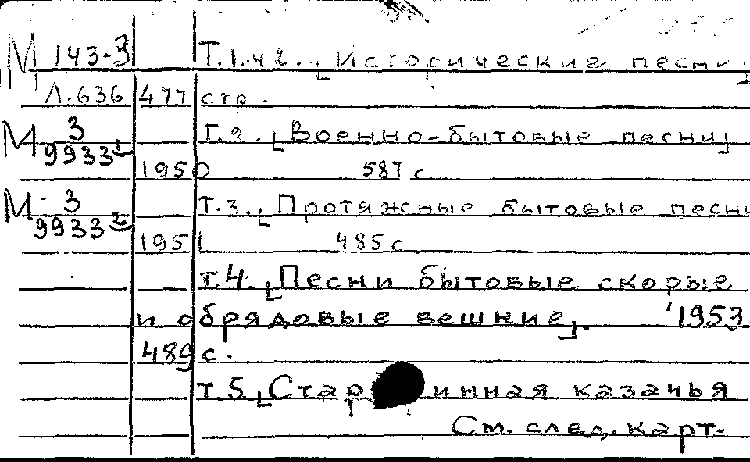 М 143-3 Т.1. 42. [Исторические песни]
Л.636 477 стр.
М 3 Т.2. [Военно-бытовые песни]
9933 1
1950 587 с
М 3 Т.3. [Протяжные бытовые песни
9933 2
1951 485 с
т.4. [Песни бытовые скорые
и обрядовые вешние]. 1953
489 с.
т.5 [Старинная казачья
См. след. карт.